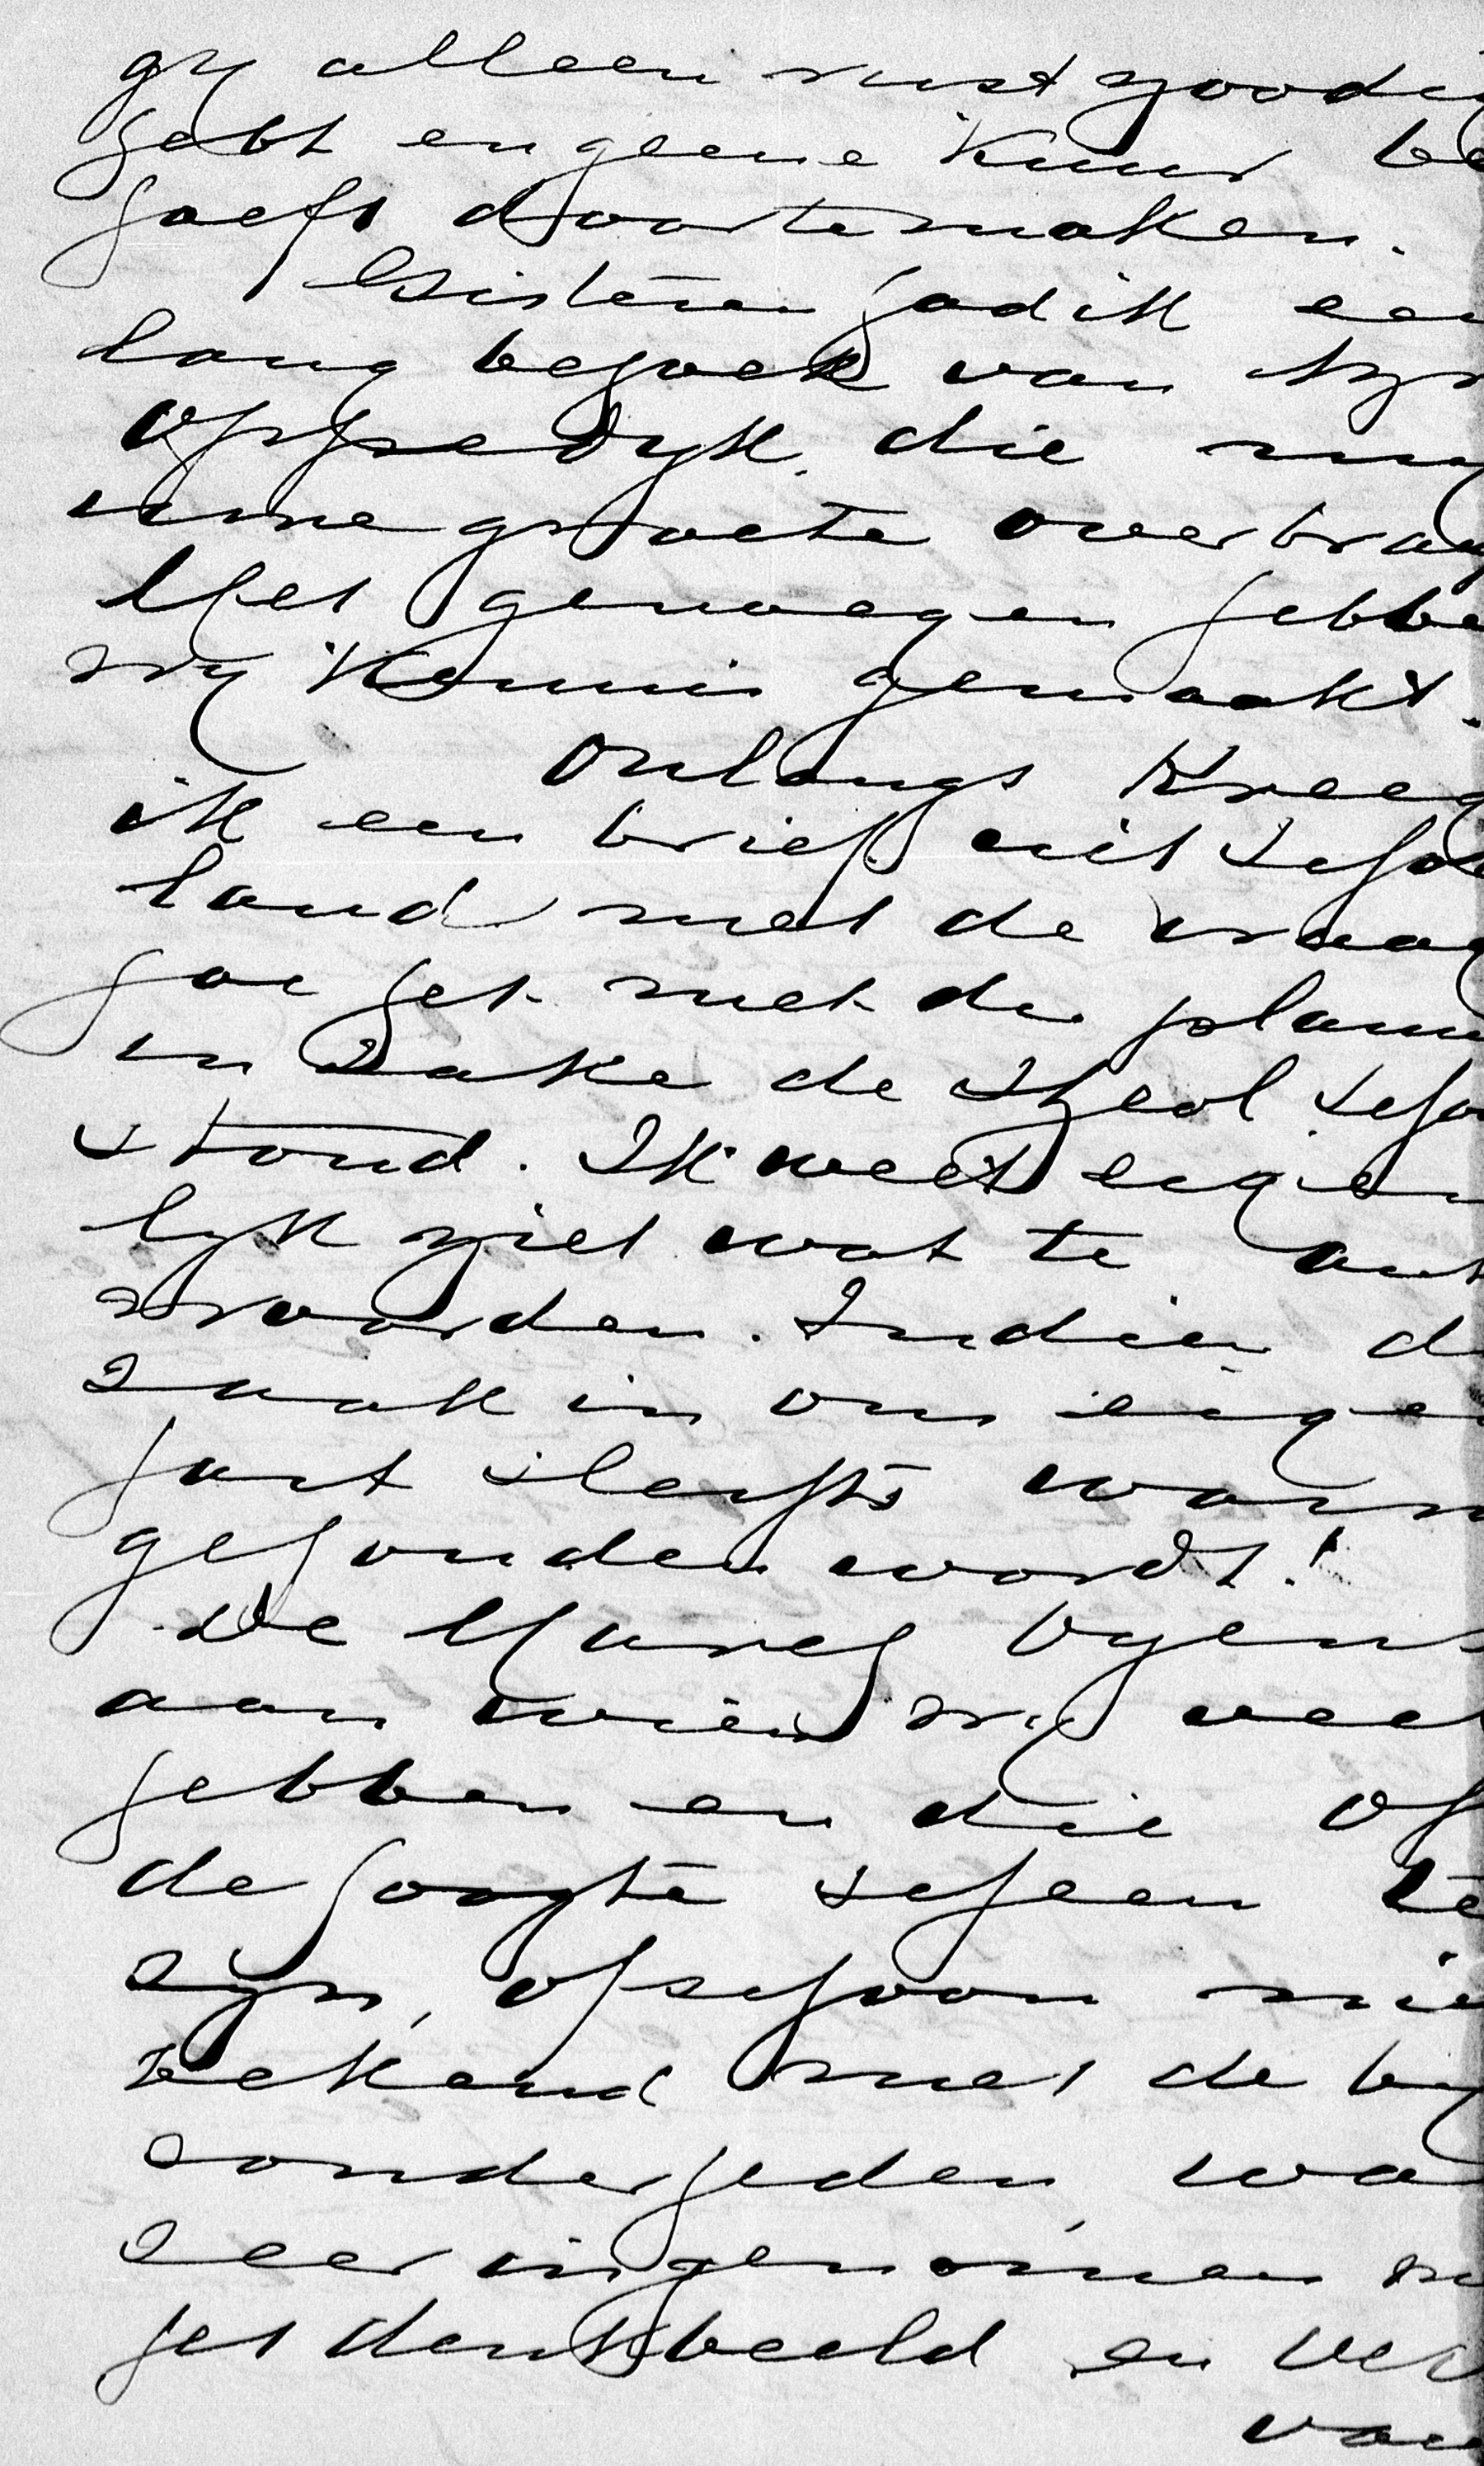 gy alleen rust noodig
hebt en geene kuur be
hoeft door te maken.
Gisteren had ik een
lang bezoek van
Oppedyk, die my
uwe groete overbrag
Met genoegen hebbe
wy kennis gemaakt.
Onlangs kreeg
ik een brief uit Scho
land met de vraag
hoe het met de plann
in zake de Theol. Scho
stond. Ik weet eigen
lyk niet wat te ant
woorden. Indien de
zaak in ons eigen
hart slechts warm
gehouden wordt!
De Heeren Bijens
aan wien wy veel
hebben en die op
de hoogte scheen te
zyn, ofschoon nie
bekend met de by
zonderheden, wa
zeer ingenomen m
het denkbeeld en ver
van